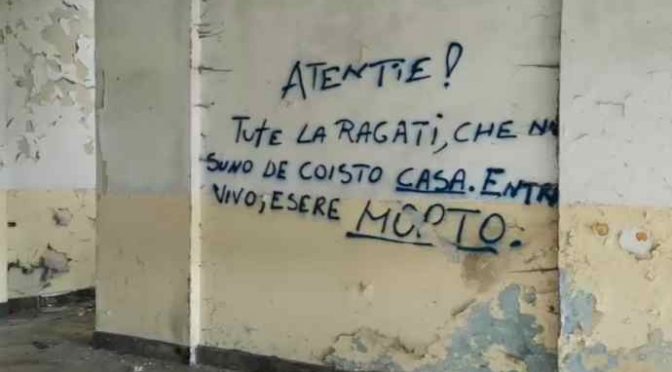 ATENTIE!
TUTE LA RAGATI, CHE NO
SUNO DE COISTO CASA. ENTRI
VIVO, ESERE MORTO.